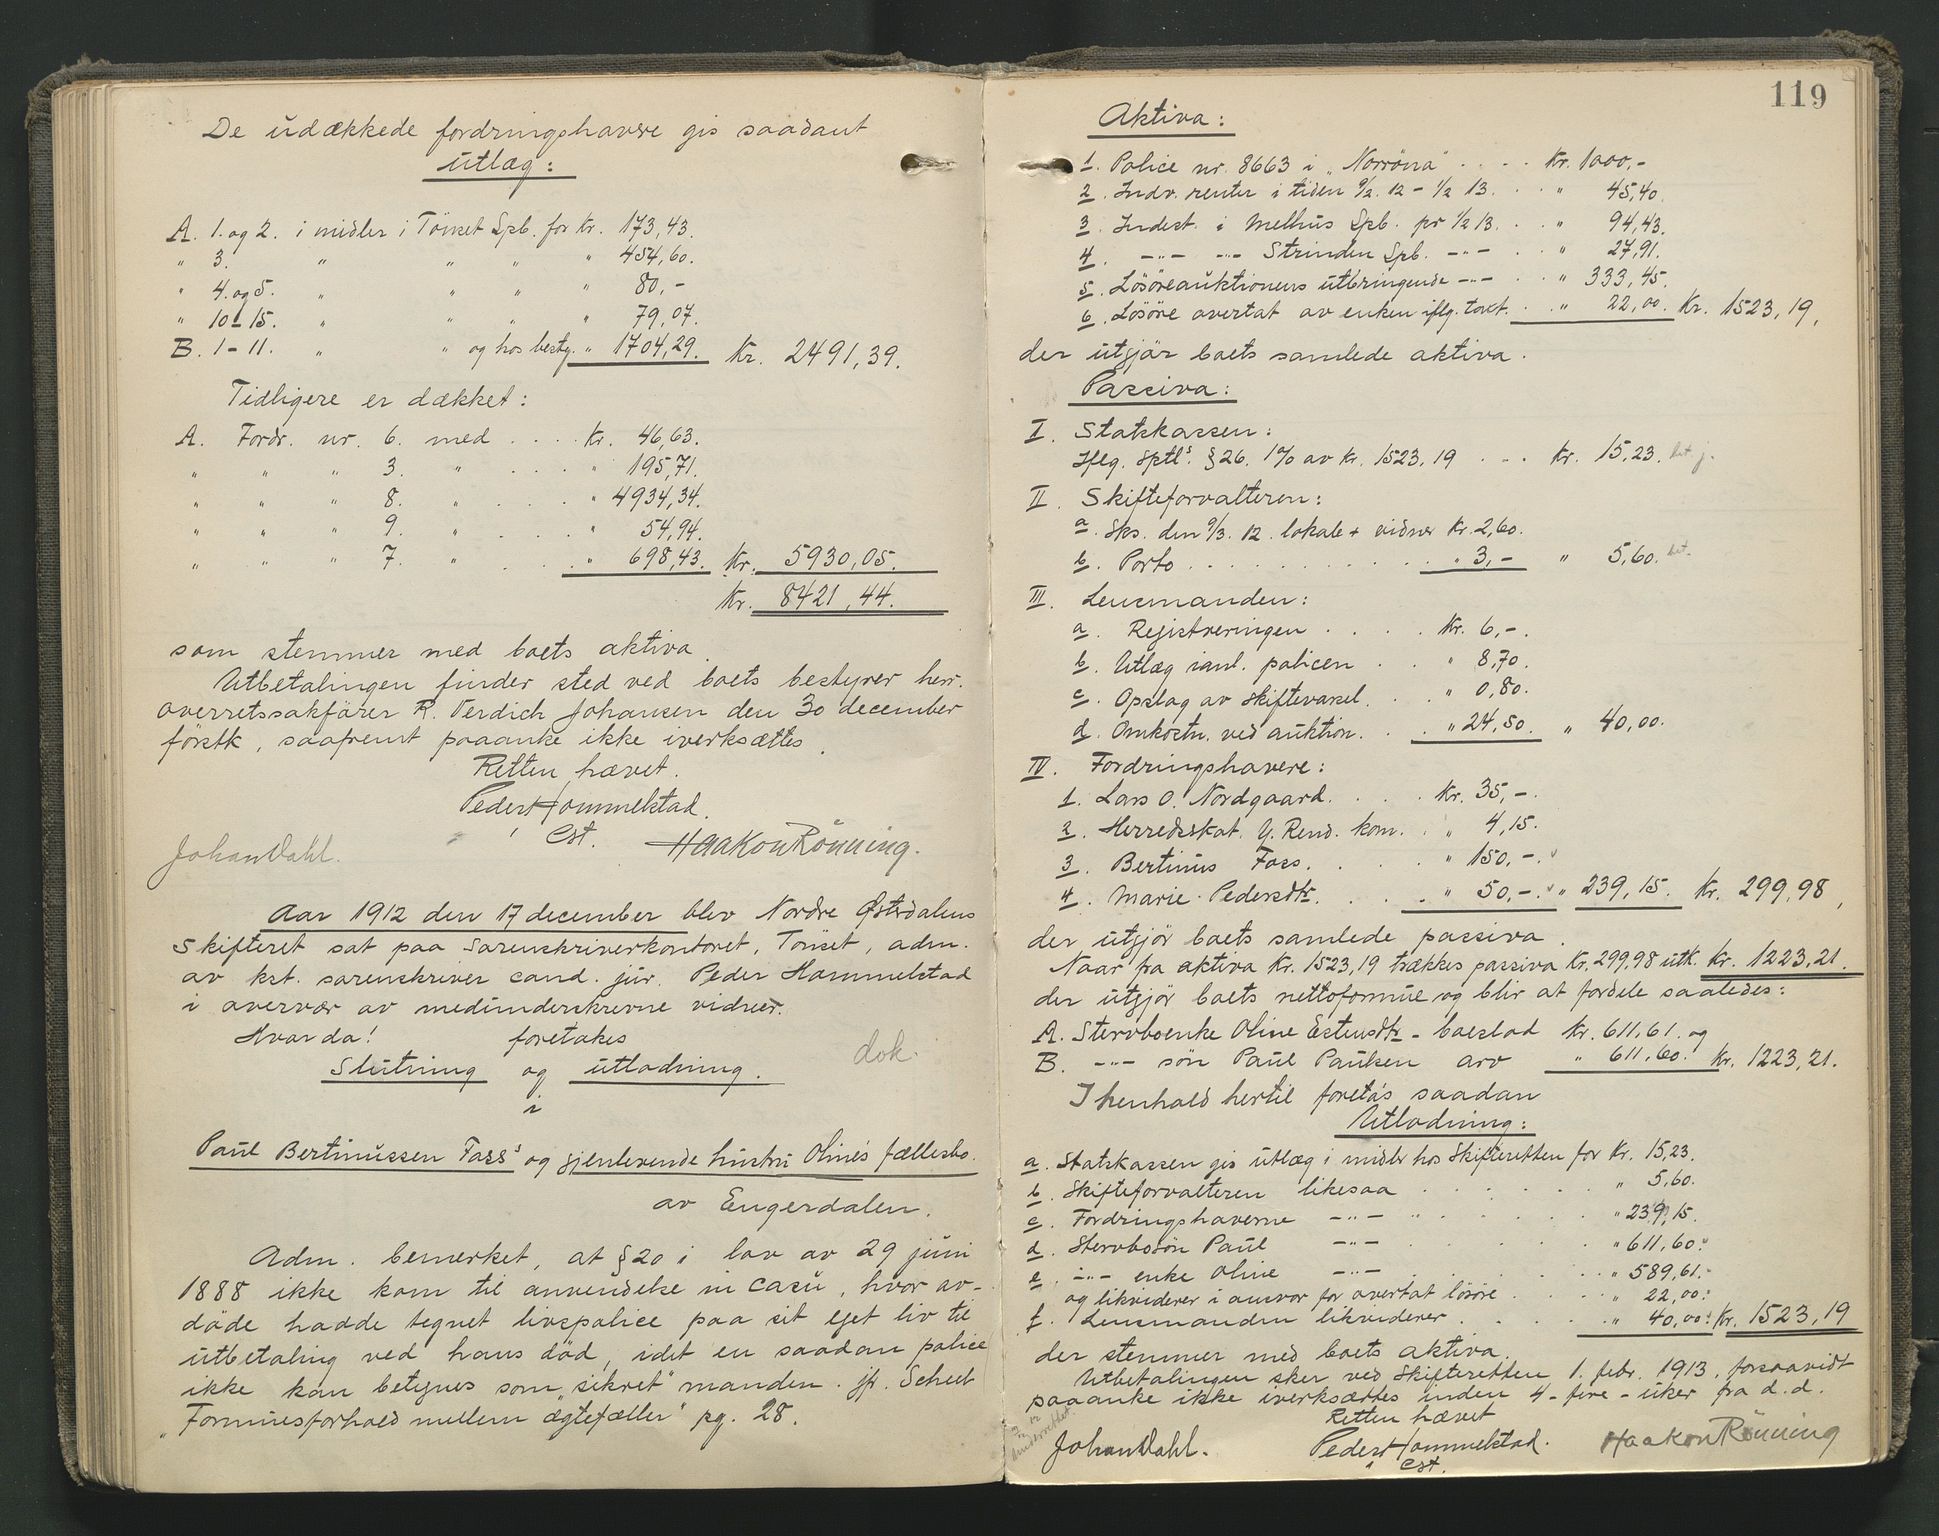 De udækkede fordringshavere gis saadant
utlæg:
A. 1. og 2. i midler i Tönset Spb. for Kr. 173,43.
" 3. " " " " 454,60.
" 4. og 5. " " " " 80,-
" 10-15. " " " " 79,07.
B. 1-11. " " og hos besty. " 1704,29. Kr. 2491,39.
Tidligere er dækket:
A. Fordr. nr. 6. med .... Kr. 46,63.
" " " 3. " .... " 195,71.
" " " 8. " .... " 4934,34.
" " " 9. " .... " 54,94.
" " " 7. " .... " 698,43. Kr. 5930,05.
Kr. 8421,44.
som stemmer med boets aktiva.
Utbetalingen finder sted ved boets bestyrer herr.
overretssakförer R. Verdich Johansen den 30 december
förstk, saafremt paaanke ikke iverksættes.
Retten hævet.
Peder Hommelstad.
Cst.
Johan Dahl. Haakon Rönning.
Aar 1912 den 17 december blev Nordre Østerdalens
Skifteret sat paa Sorenskriverkontoret, Tönset, adm.
av kst. sorenskriver cand. jur. Peder Hommelstad
i overvær av medunderskrevne vidner.
Hvor da! foretakes
Slutning og utlodning. dok.
i
Paul Bertinussen Foss's og gjenlevende hustru Olines fællesbo.
av Engerdalen.
Adm. bemerket, at § 20 i lov av 29 juni
1888 ikke kom til anvendelse in casu, hvor av-
döde hadde tegnet livspolice paa sit eget liv til
utbetaling ved hans död, idet en saadan police
ikke kan betegnes som "sikret" manden. jfr. Scheel
"Formuesforhold mellem ægtefæller" pg. 28.
119
Aktiva:
1. Police nr. 8663 i "Norröna" .... Kr. 1000,-
2. Indv. renter i tiden 9/2. 12 - 1/2 13. . . " 45,40.
3. Indest. i Melhus Spb. pr 1/2 13. . . " 94,43.
4. -"- -"- Strinden Spb. -"- . " 27,91.
5. Lösöreauktionens utbringende -"- . " 333,45.
6. Lösöre overtat av enken iflg. takst. . " 22,00. Kr. 1523,19,
der utgjör boets samlede aktiva.
Passiva:
I. Statskassen:
Iflg. Sptl's. § 26. 1% av Kr. 1523,19 ... Kr. 15,23.
II. Skifteforvalteren:
a. Sks. den 9/3. 12. lokale + vidner Kr. 2,60.
b. Porto .......... " 3,- " 5,60. bet.
III. Lensmanden:
a. Registreringen .... Kr. 6,-.
b. Utlæg ianl. policen . . " 8,70.
c. Opslag av skiftevarsel. . . " 0,80.
d. Omkostn. ved auktion. . . " 24,50. " 40,00.
IV. Fordringshavere:
1. Lars O. Nordgaard. .... Kr. 35,-.
2. Herredsskat. Y. Rend. kom. . " 4,15.
3. Bertinus Foss. .... " 150,-.
4. Marie Pedersdtr. .... " 50,-. " 239,15. Kr. 299,98,
der utgjör boets samlede passiva.
Naar fra aktiva Kr. 1523,19 trækkes passiva Kr. 299,98 utk. Kr. 1223,21.
der utgjör boets nettoformue og blir at fordele saaledes:
A. Stervboenke Oline Estensdtr - boeslod Kr. 611,61. og
B. -"- sön Paul Paulsen arv " 611,60. Kr. 1223,21.
I henhold hertil foretas saadan
Utlodning:
a. Statskassen gis utlæg i midler hos Skifteretten for Kr. 15,23.
b. Skifteforvalteren likesaa ...... " 5,60.
c. Fordringshaverne -"- ...... " 239,15.
d. Stervbosön Paul -"- ...... " 611,60.
e. -"- enke Oline -"- ...... " 589,61.
og likviderer i ansvar for overtat lösöre .... " 22,00.
f. Lensmanden likviderer ...... " 40,00. Kr. 1523,19
der stemmer med boets aktiva.
Utbetalingen sker ved Skifteretten 1. febr. 1913, forsaavidt
paaanke ikke iverksættes inden 4 - fire - uker fra d.d.
Retten hævet
Johan Dahl. Peder Hommelstad. Haakon Rönning
Cst.